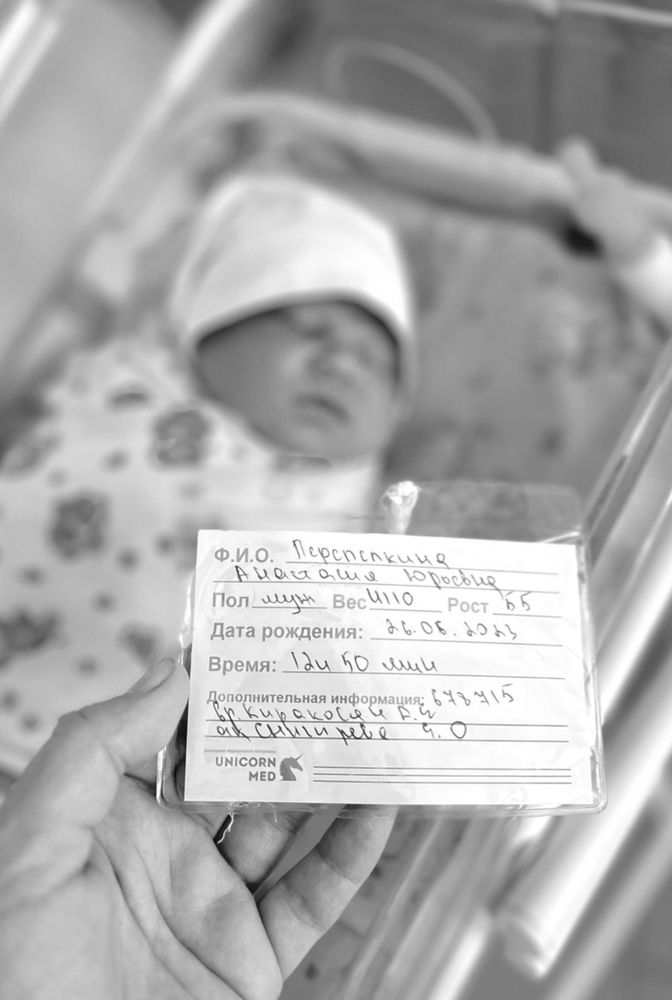 Ф.И.О. Перепелкина
Анастасия Юрьевна
Пол муж Вес 4110 Рост 55
Дата рождения: 26.06.2023
Время: 12ч 50 мин
Дополнительная информация: 678715
вр Киракосян
ак Снигирева
UNICORN
MED